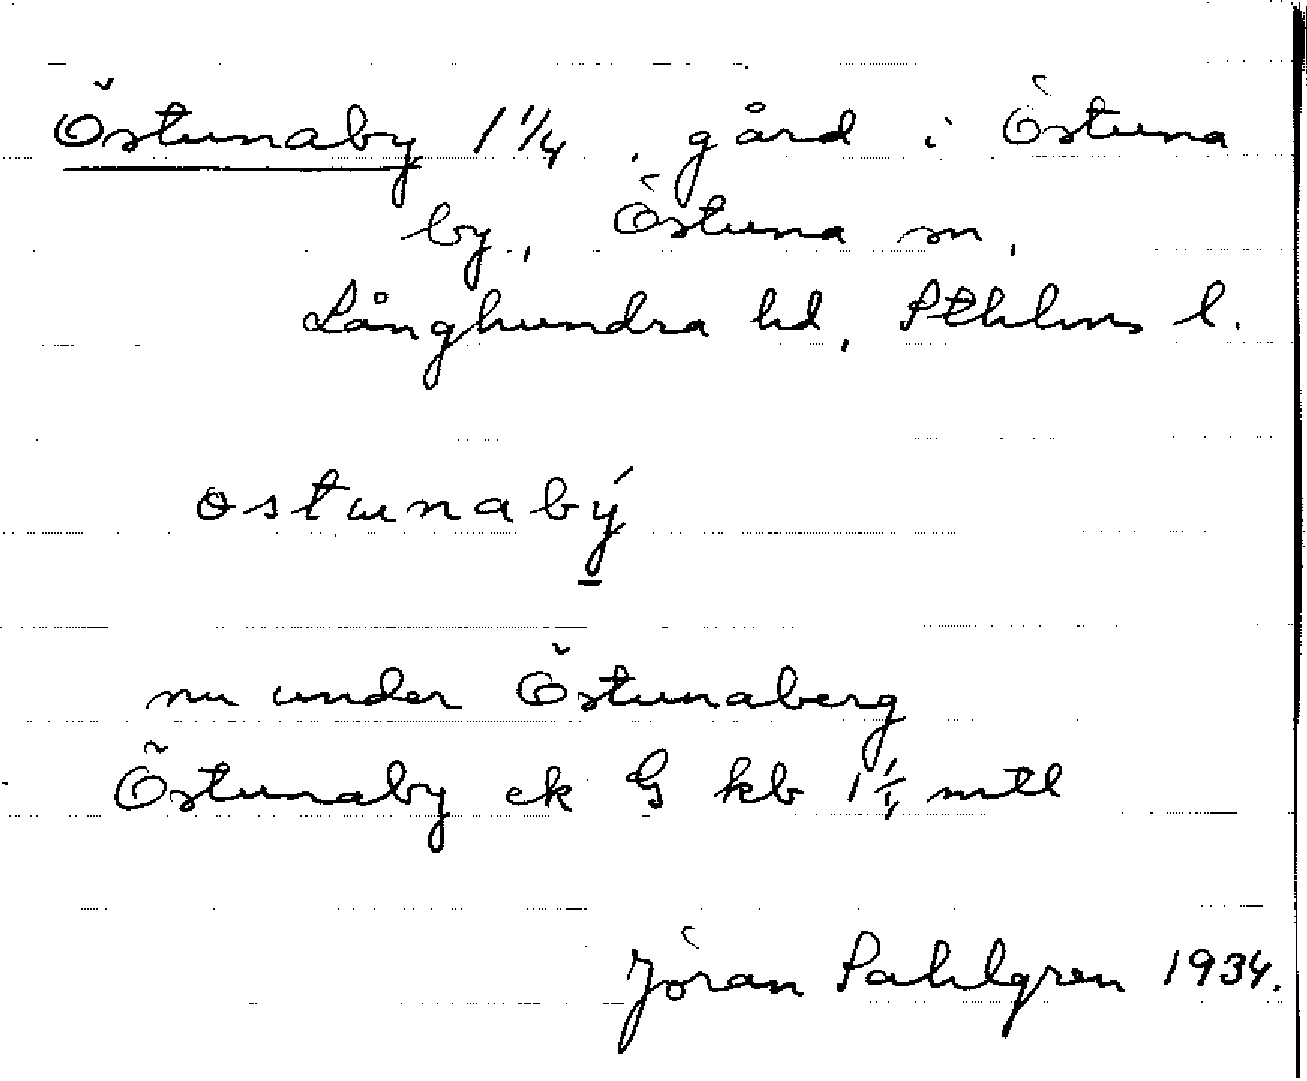 Östunaby 1 1/4, gård i Östuna
by, Östuna sn,
Långhundra hd, Sthlms l.
ɵstɯnabý̠
nu under Östunaberg
Östunaby ek G kb 1 1/4 mtl
Jöran Sahlgren 1934.